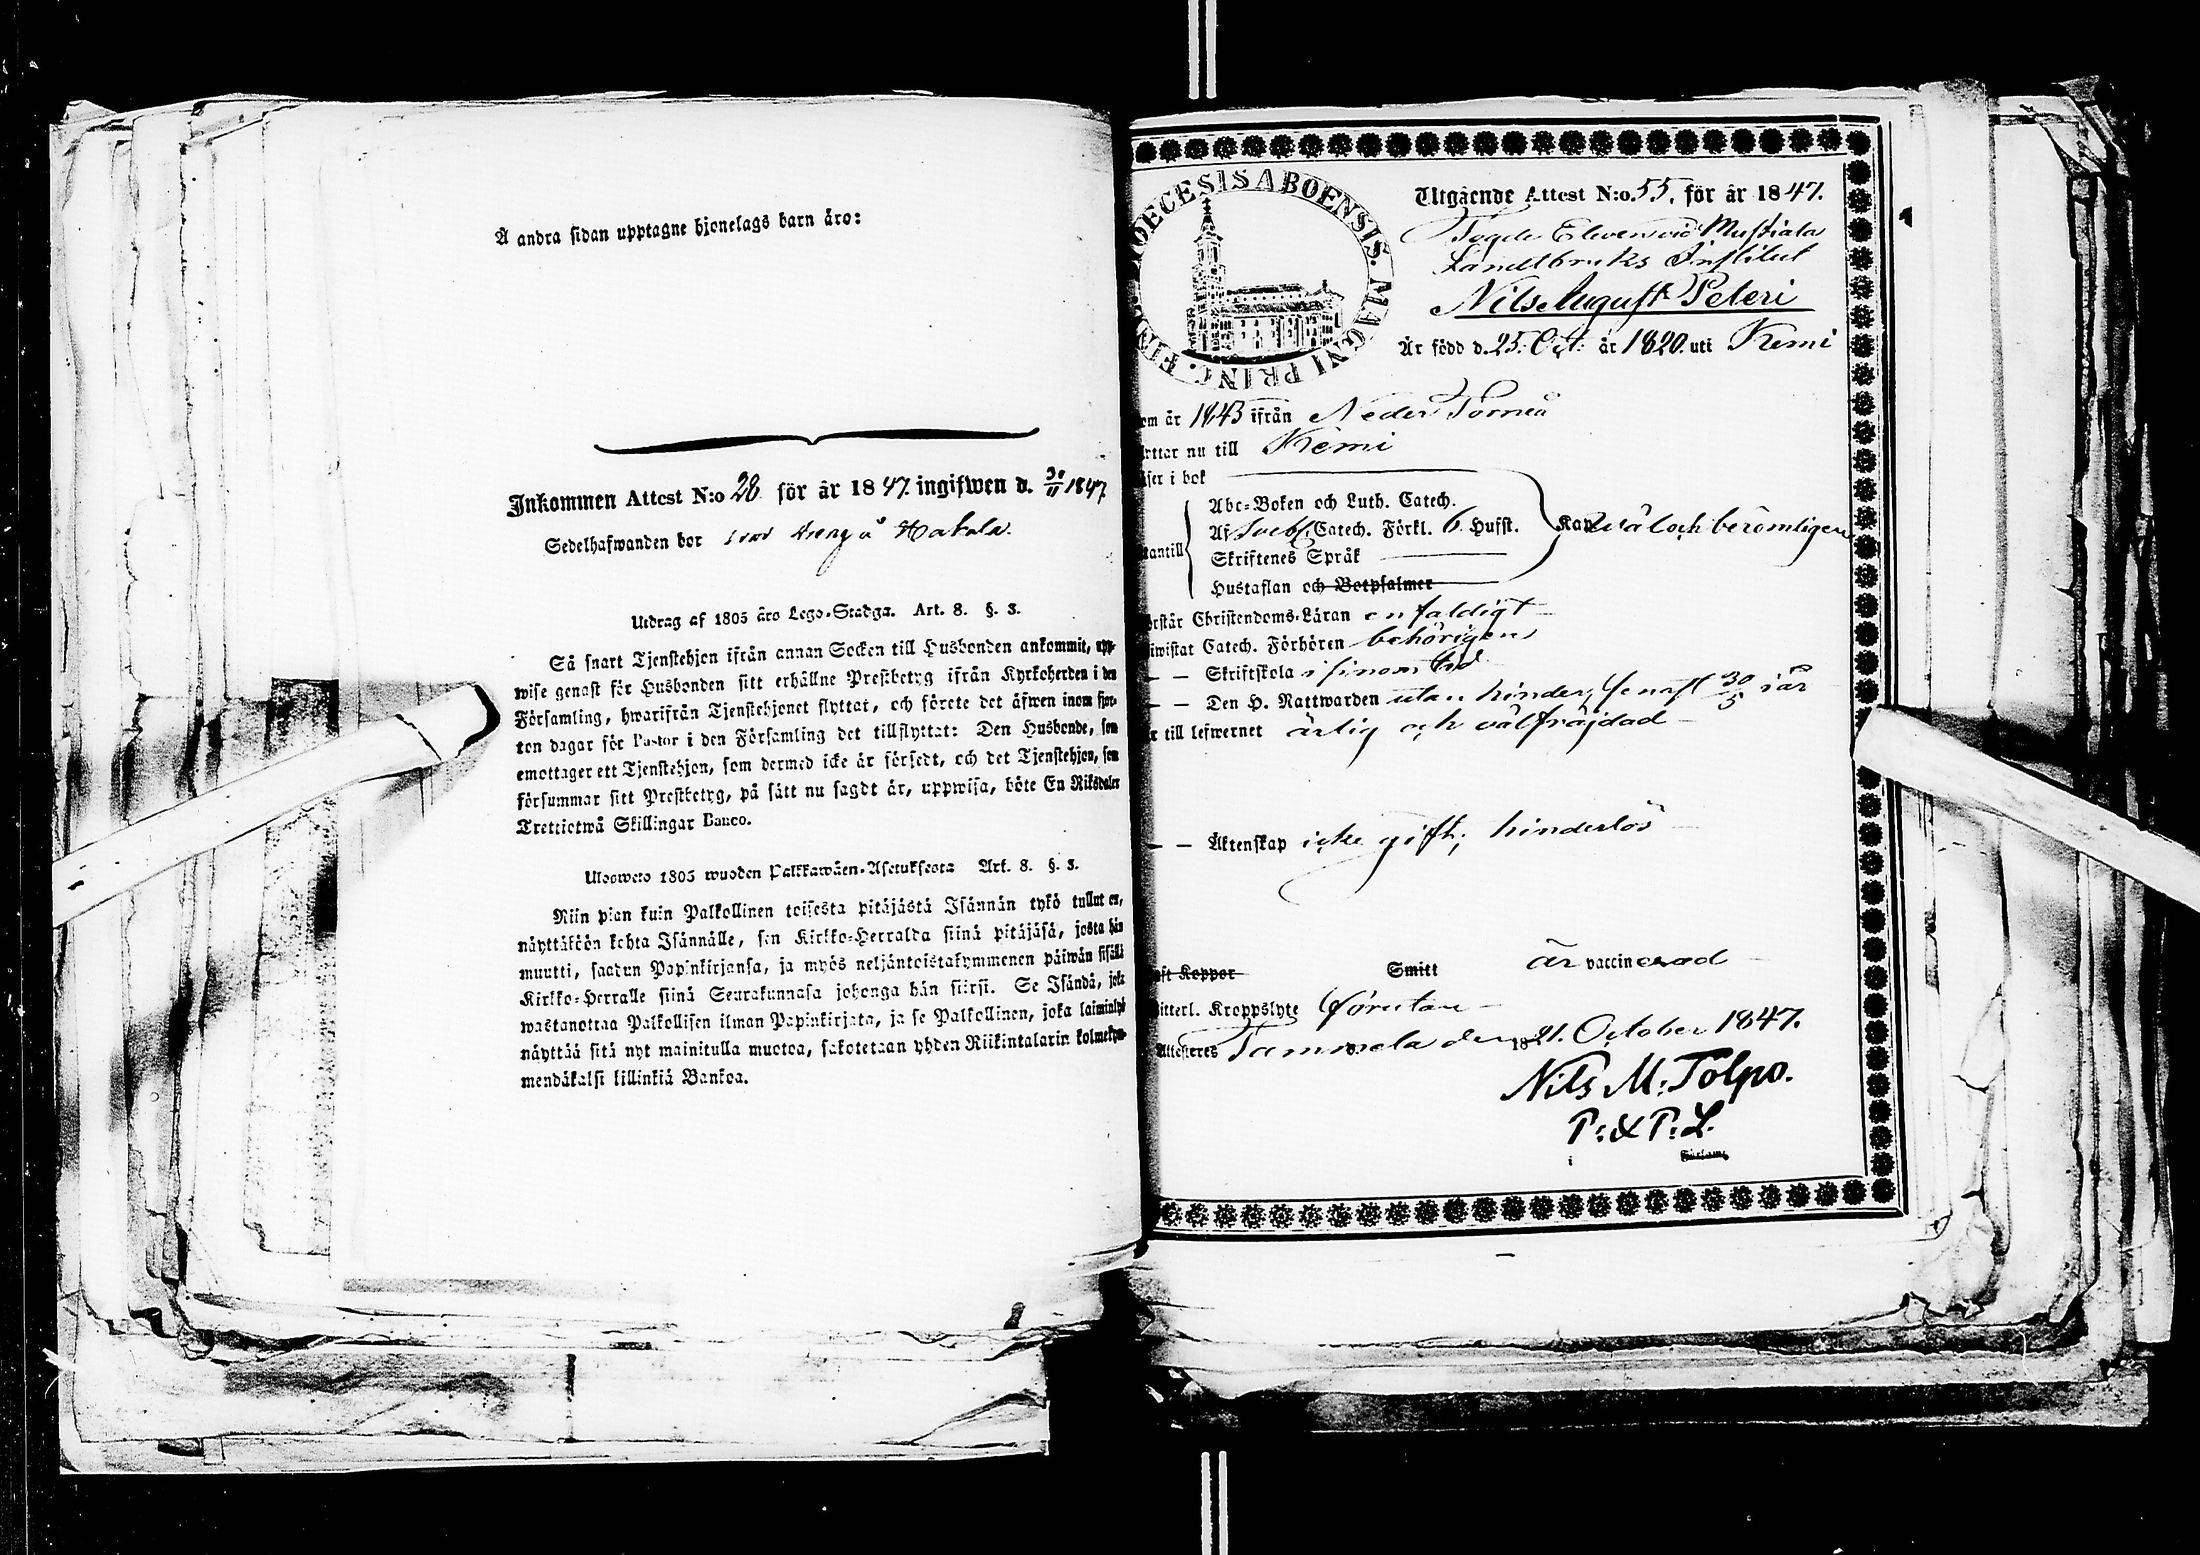 Å andra sidan upptagne hjonelags barn äro:
Inkommen Attest N:o 28 för år 1847. ingifwen d. 30/11 1847
Sedelhafwanden bor som dreng å Hakala.
Utdrag af 1805 års Lego-Stadga. Art. 8. §. 3.
Så snart Tjenstehjon ifrån annan Socken till Husbonden ankommit, upp-
wise genast för Husbonden sitt erhållne Prestbetyg ifrån Kyrkoherden i den
Församling, hwarifrån Tjenstehjonet flyttat, och förete det äfwen inom fjor-
ton dagar för Pastor i den Församling det tillflyttat: Den Husbonde, som
emottager ett Tjenstehjon, som dermed icke är försedt, och det Tjenstehjon, som
försummar sitt Prestbetyg, på sätt nu sagdt är, uppwisa, böte En Riksdaler
Trettiotwå Skillingar Banco.
Ulosweto 1805 wuoden Palkkawäen-Asetuksesta Art. 8. §. 3.
Niin pian kuin Palkollinen toisesta pitäjästä Isännän tykö tullut on,
näyttäköön kohta Isännälle, sen Kirkko-Herralda siinä pitäjäsä, josta hän
muutti, saadun Papinkirjansa, ja myös neljäntoistakymmenen päiwän sisällä
Kirkko-Herralle siinä Seurakunnasa johonga hän siirsi. Se Isändä, joka
wastanottaa Palkollisen ilman Papinkirjata, ja se Palkollinen, joka laiminlyö
näyttää sitä nyt mainitulla muotoa, sakotetaan yhden Riikintalarin kolmekym-
mendäkaksi killinkiä Bankoa.
DIOECESIS ABOENSIS. MAGNI PRINC. FIN
Utgående Attest N:o 55. för år 1847.
Eleven vid Mustiala
Landtbruks Institut
Nils August Peteri
Är född d. 25. Oct: år 1820. uti Kemi
om år 1843 ifrån Neder Torneå
yttar nu till Kemi
äser i bok
Abc-Boken och Luth. Catech.
Af Svebil. Catech. Förkl. 6. Hufst.
Kan väl och berömligen
tantill
Skriftenes Språk
Hustaflan och Botpsalmer
örstår Christendoms-Läran enfaldigt
iwistat Catech. Förhören behörigen
— — Skriftskola i sinom tid
— — Den H. Nattwarden utan hinder, senast 30/5 i år
r till lefwernet ärlig och välfräjdad
— — Äktenskap icke gift; hinderlös
aft Koppor Smitt är vaccinerad
itterl. Kroppslyte förutan
Attesteres Tammela den 21. October 1847.
Nils M: Tolpo.
P: & P: L.
Församl.